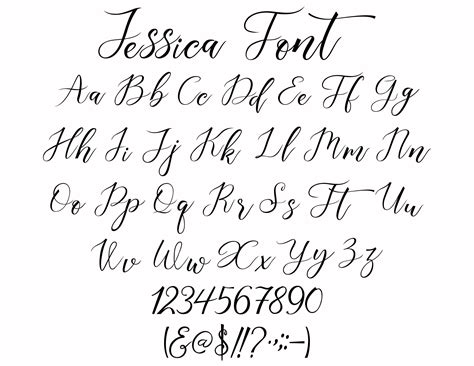 Jessica Font
Aa Bb Cc Dd Ee Ff Gg
Hh Ii Jj Kk Ll Mm Nn
Oo Pp Qq Rr Ss Tt Uu
Vv Ww Xx Yy Zz
1234567890
(&@$!!?·,;:–)